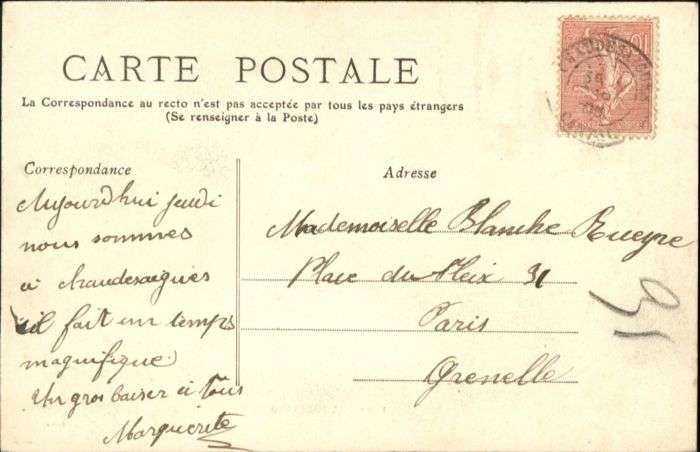 CARTE POSTALE
La Correspondance au recto n'est pas acceptée par tous les pays étrangers
(Se renseigner à la Poste)
Correspondance
Adresse
Aujourd'hui jeudi
nous sommes
à chaudesaigues
il fait un temps
magnifique
Un gros baiser à Tous
Marguerite
Mademoiselle Blanche Rueyre
Place du 31
Paris
Grenelle
10